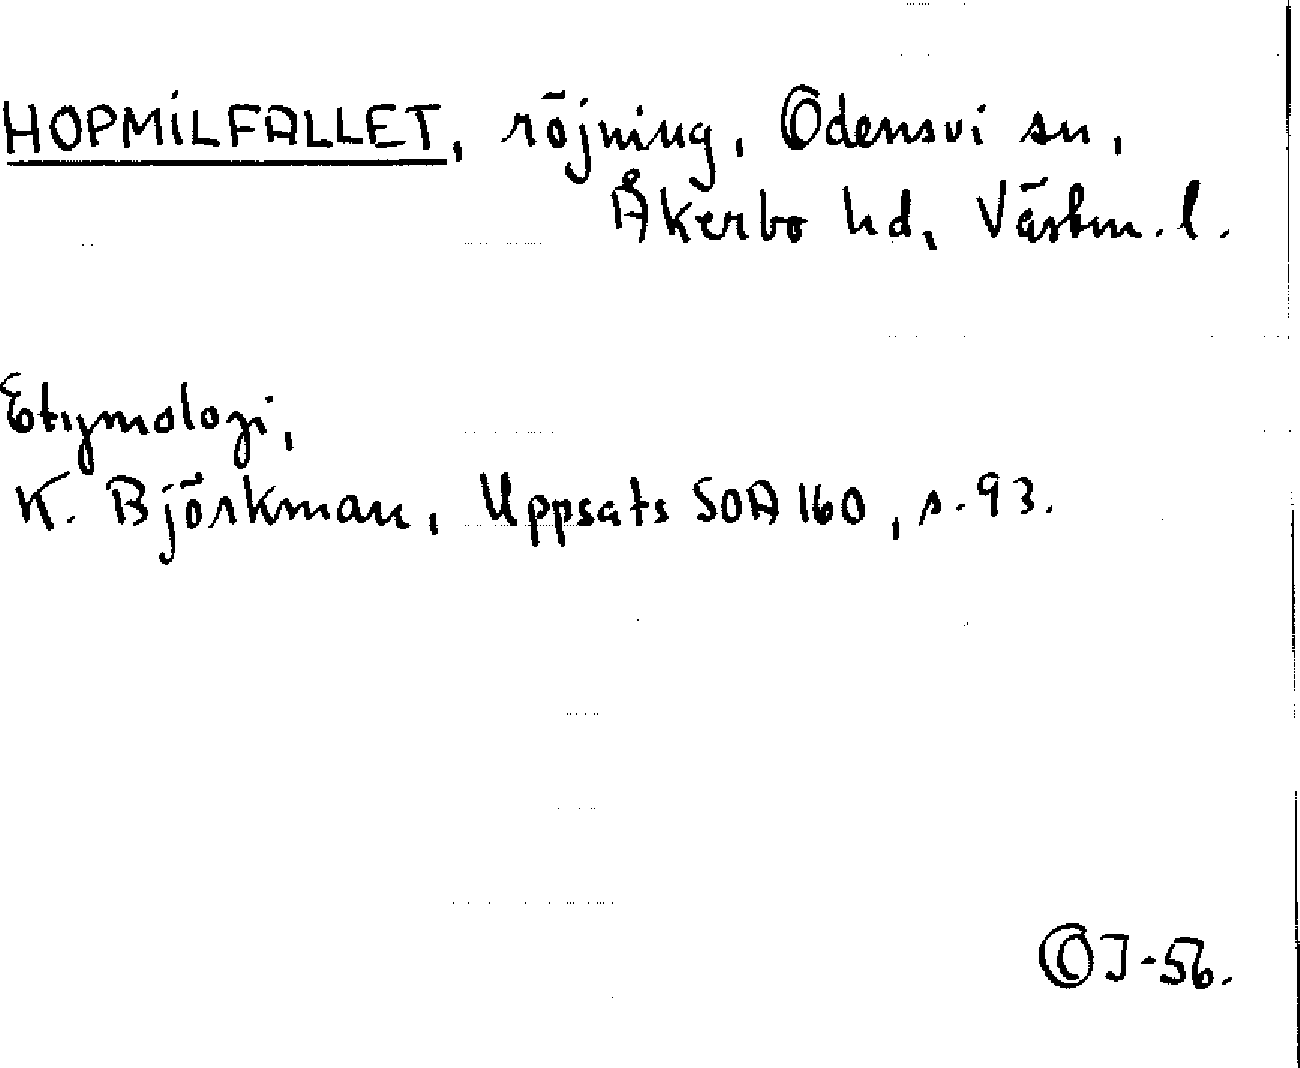 HOPMILFALLET, röjning, Odensvi sn,
Åkerbo hd, Västm. l.
Etymologi,
K. Björkman, Uppsats SOA 160, s. 93.
OJ-56.